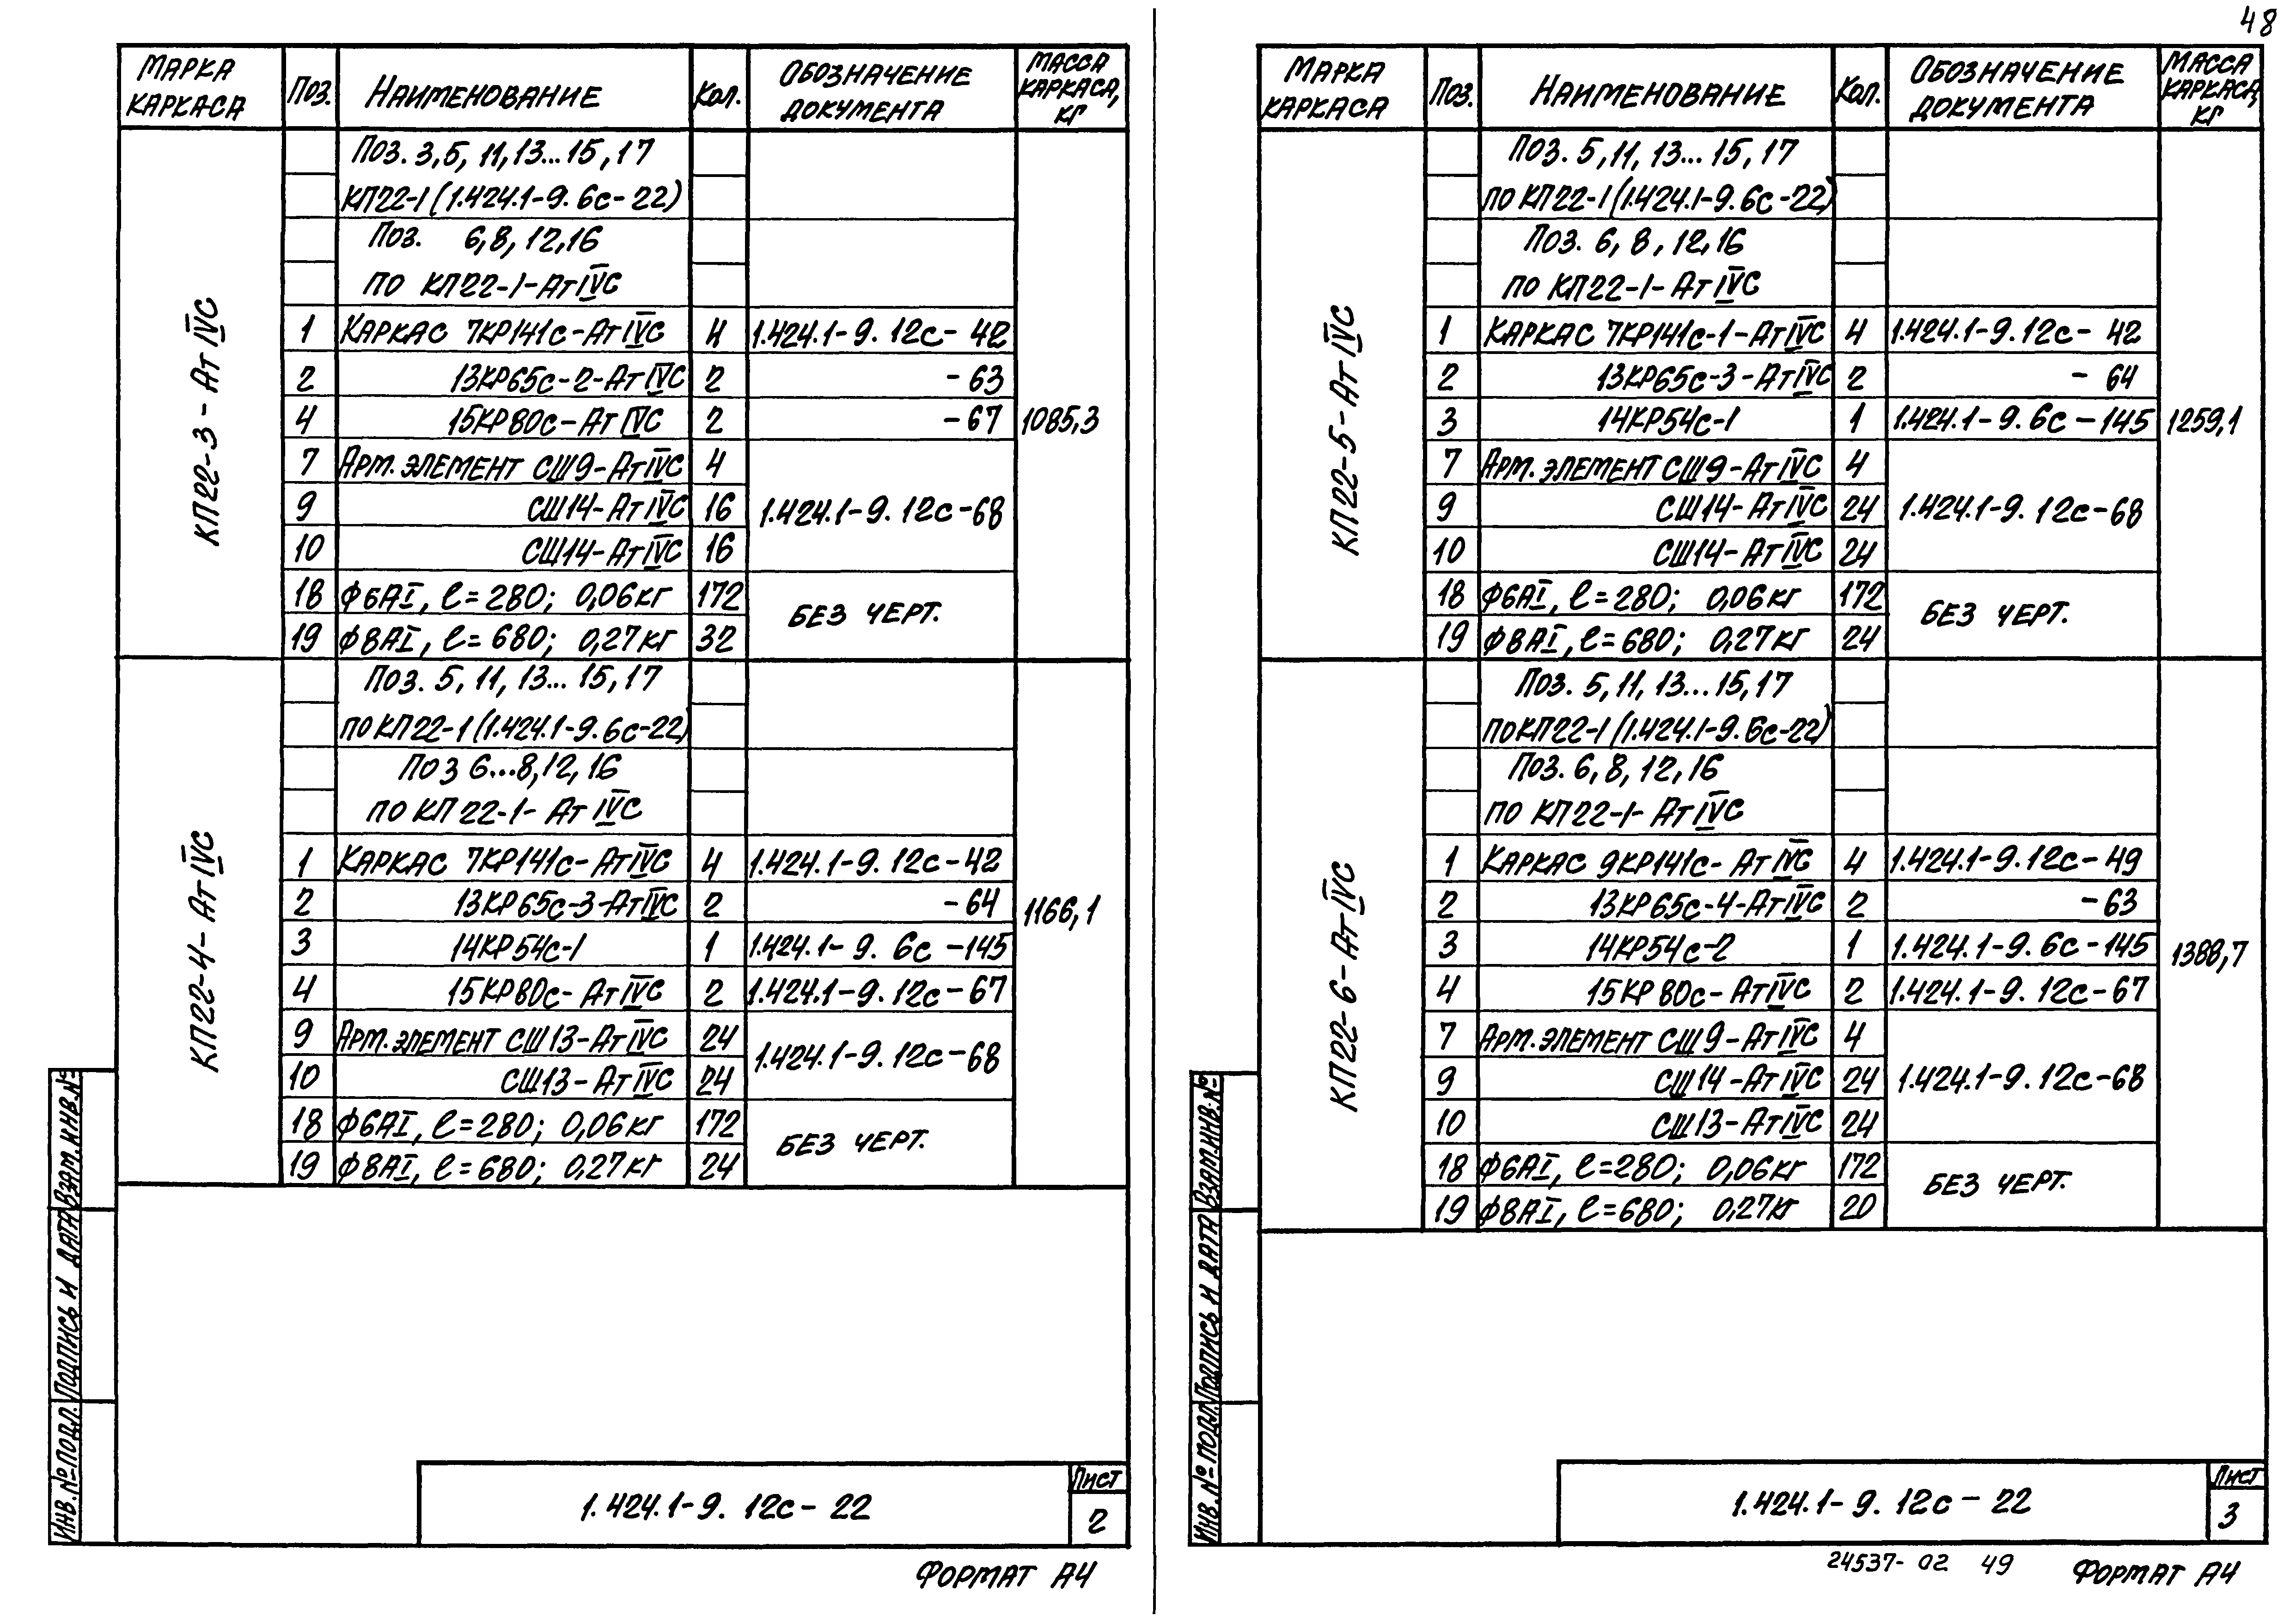 48
МАРКА КАРКАСА | ПОЗ. | НАИМЕНОВАНИЕ | КОЛ. | ОБОЗНАЧЕНИЕ ДОКУМЕНТА | МАССА КАРКАСА, КГ
КП22-3-АтIVС
1085,3
ПОЗ. 3,5, 11, 13...15, 17
КП22-1 (1.424.1-9.6с-22)
ПОЗ. 6,8, 12,16
ПО КП22-1-АтIVС
1 | КАРКАС 7КР141с-АтIVС | 4 | 1.424.1-9.12с-42
2 | 13КР65с-2-АтIVС | 2 | -63
4 | 15КР80с-АтIVС | 2 | -67
7 | АРМ. ЭЛЕМЕНТ СШ9-АтIVС | 4
9 | СШ14-АтIVС | 16 | 1.424.1-9.12с-68
10 | СШ14-АтIVС | 16
18 | Ф6АI, ℓ=280; 0,06кг | 172 | БЕЗ ЧЕРТ.
19 | Ф8АI, ℓ=680; 0,27кг | 32
КП22-4-АтIVС
1166,1
ПОЗ. 5, 11, 13...15, 17
ПО КП22-1 (1.424.1-9.6с-22)
ПОЗ 6...8, 12, 16
ПО КП22-1-АтIVС
1 | КАРКАС 7КР141с-АтIVС | 4 | 1.424.1-9.12с-42
2 | 13КР65с-3-АтIVС | 2 | -64
3 | 14КР54с-1 | 1 | 1.424.1-9.6с-145
4 | 15КР80с-АтIVС | 2 | 1.424.1-9.12с-67
9 | АРМ. ЭЛЕМЕНТ СШ13-АтIVС | 24 | 1.424.1-9.12с-68
10 | СШ13-АтIVС | 24
18 | Ф6АI, ℓ=280; 0,06кг | 172 | БЕЗ ЧЕРТ.
19 | Ф8АI, ℓ=680; 0,27кг | 24
ИНВ. №ПОДЛ. | ПОДПИСЬ И ДАТА | ВЗАМ.ИНВ.№
1.424.1-9.12с-22
ЛИСТ
2
ФОРМАТ А4
МАРКА КАРКАСА | ПОЗ. | НАИМЕНОВАНИЕ | КОЛ. | ОБОЗНАЧЕНИЕ ДОКУМЕНТА | МАССА КАРКАСА, КГ
КП22-5-АтIVС
1259,1
ПОЗ. 5, 11, 13...15, 17
ПО КП22-1 (1.424.1-9.6с-22)
ПОЗ. 6, 8, 12, 16
ПО КП22-1-АтIVС
1 | КАРКАС 7КР141с-1-АтIVС | 4 | 1.424.1-9.12с-42
2 | 13КР65с-3-АтIVС | 2 | -64
3 | 14КР54с-1 | 1 | 1.424.1-9.6с-145
7 | АРМ. ЭЛЕМЕНТ СШ9-АтIVС | 4
9 | СШ14-АтIVС | 24 | 1.424.1-9.12с-68
10 | СШ14-АтIVС | 24
18 | Ф6АI, ℓ=280; 0,06кг | 172 | БЕЗ ЧЕРТ.
19 | Ф8АI, ℓ=680; 0,27кг | 24
КП22-6-АтIVС
1388,7
ПОЗ. 5, 11, 13...15, 17
ПО КП22-1 (1.424.1-9.6с-22)
ПОЗ. 6, 8, 12, 16
ПО КП22-1-АтIVС
1 | КАРКАС 9КР141с-АтIVС | 4 | 1.424.1-9.12с-49
2 | 13КР65с-4-АтIVС | 2 | -63
3 | 14КР54с-2 | 1 | 1.424.1-9.6с-145
4 | 15КР80с-АтIVС | 2 | 1.424.1-9.12с-67
7 | АРМ. ЭЛЕМЕНТ СШ9-АтIVС | 4
9 | СШ14-АтIVС | 24 | 1.424.1-9.12с-68
10 | СШ13-АтIVС | 24
18 | Ф6АI, ℓ=280; 0,06кг | 172 | БЕЗ ЧЕРТ.
19 | Ф8АI, ℓ=680; 0,27кг | 20
ИНВ. №ПОДЛ. | ПОДПИСЬ И ДАТА | ВЗАМ.ИНВ.№
1.424.1-9.12с-22
ЛИСТ
3
24537-02 49
ФОРМАТ А4